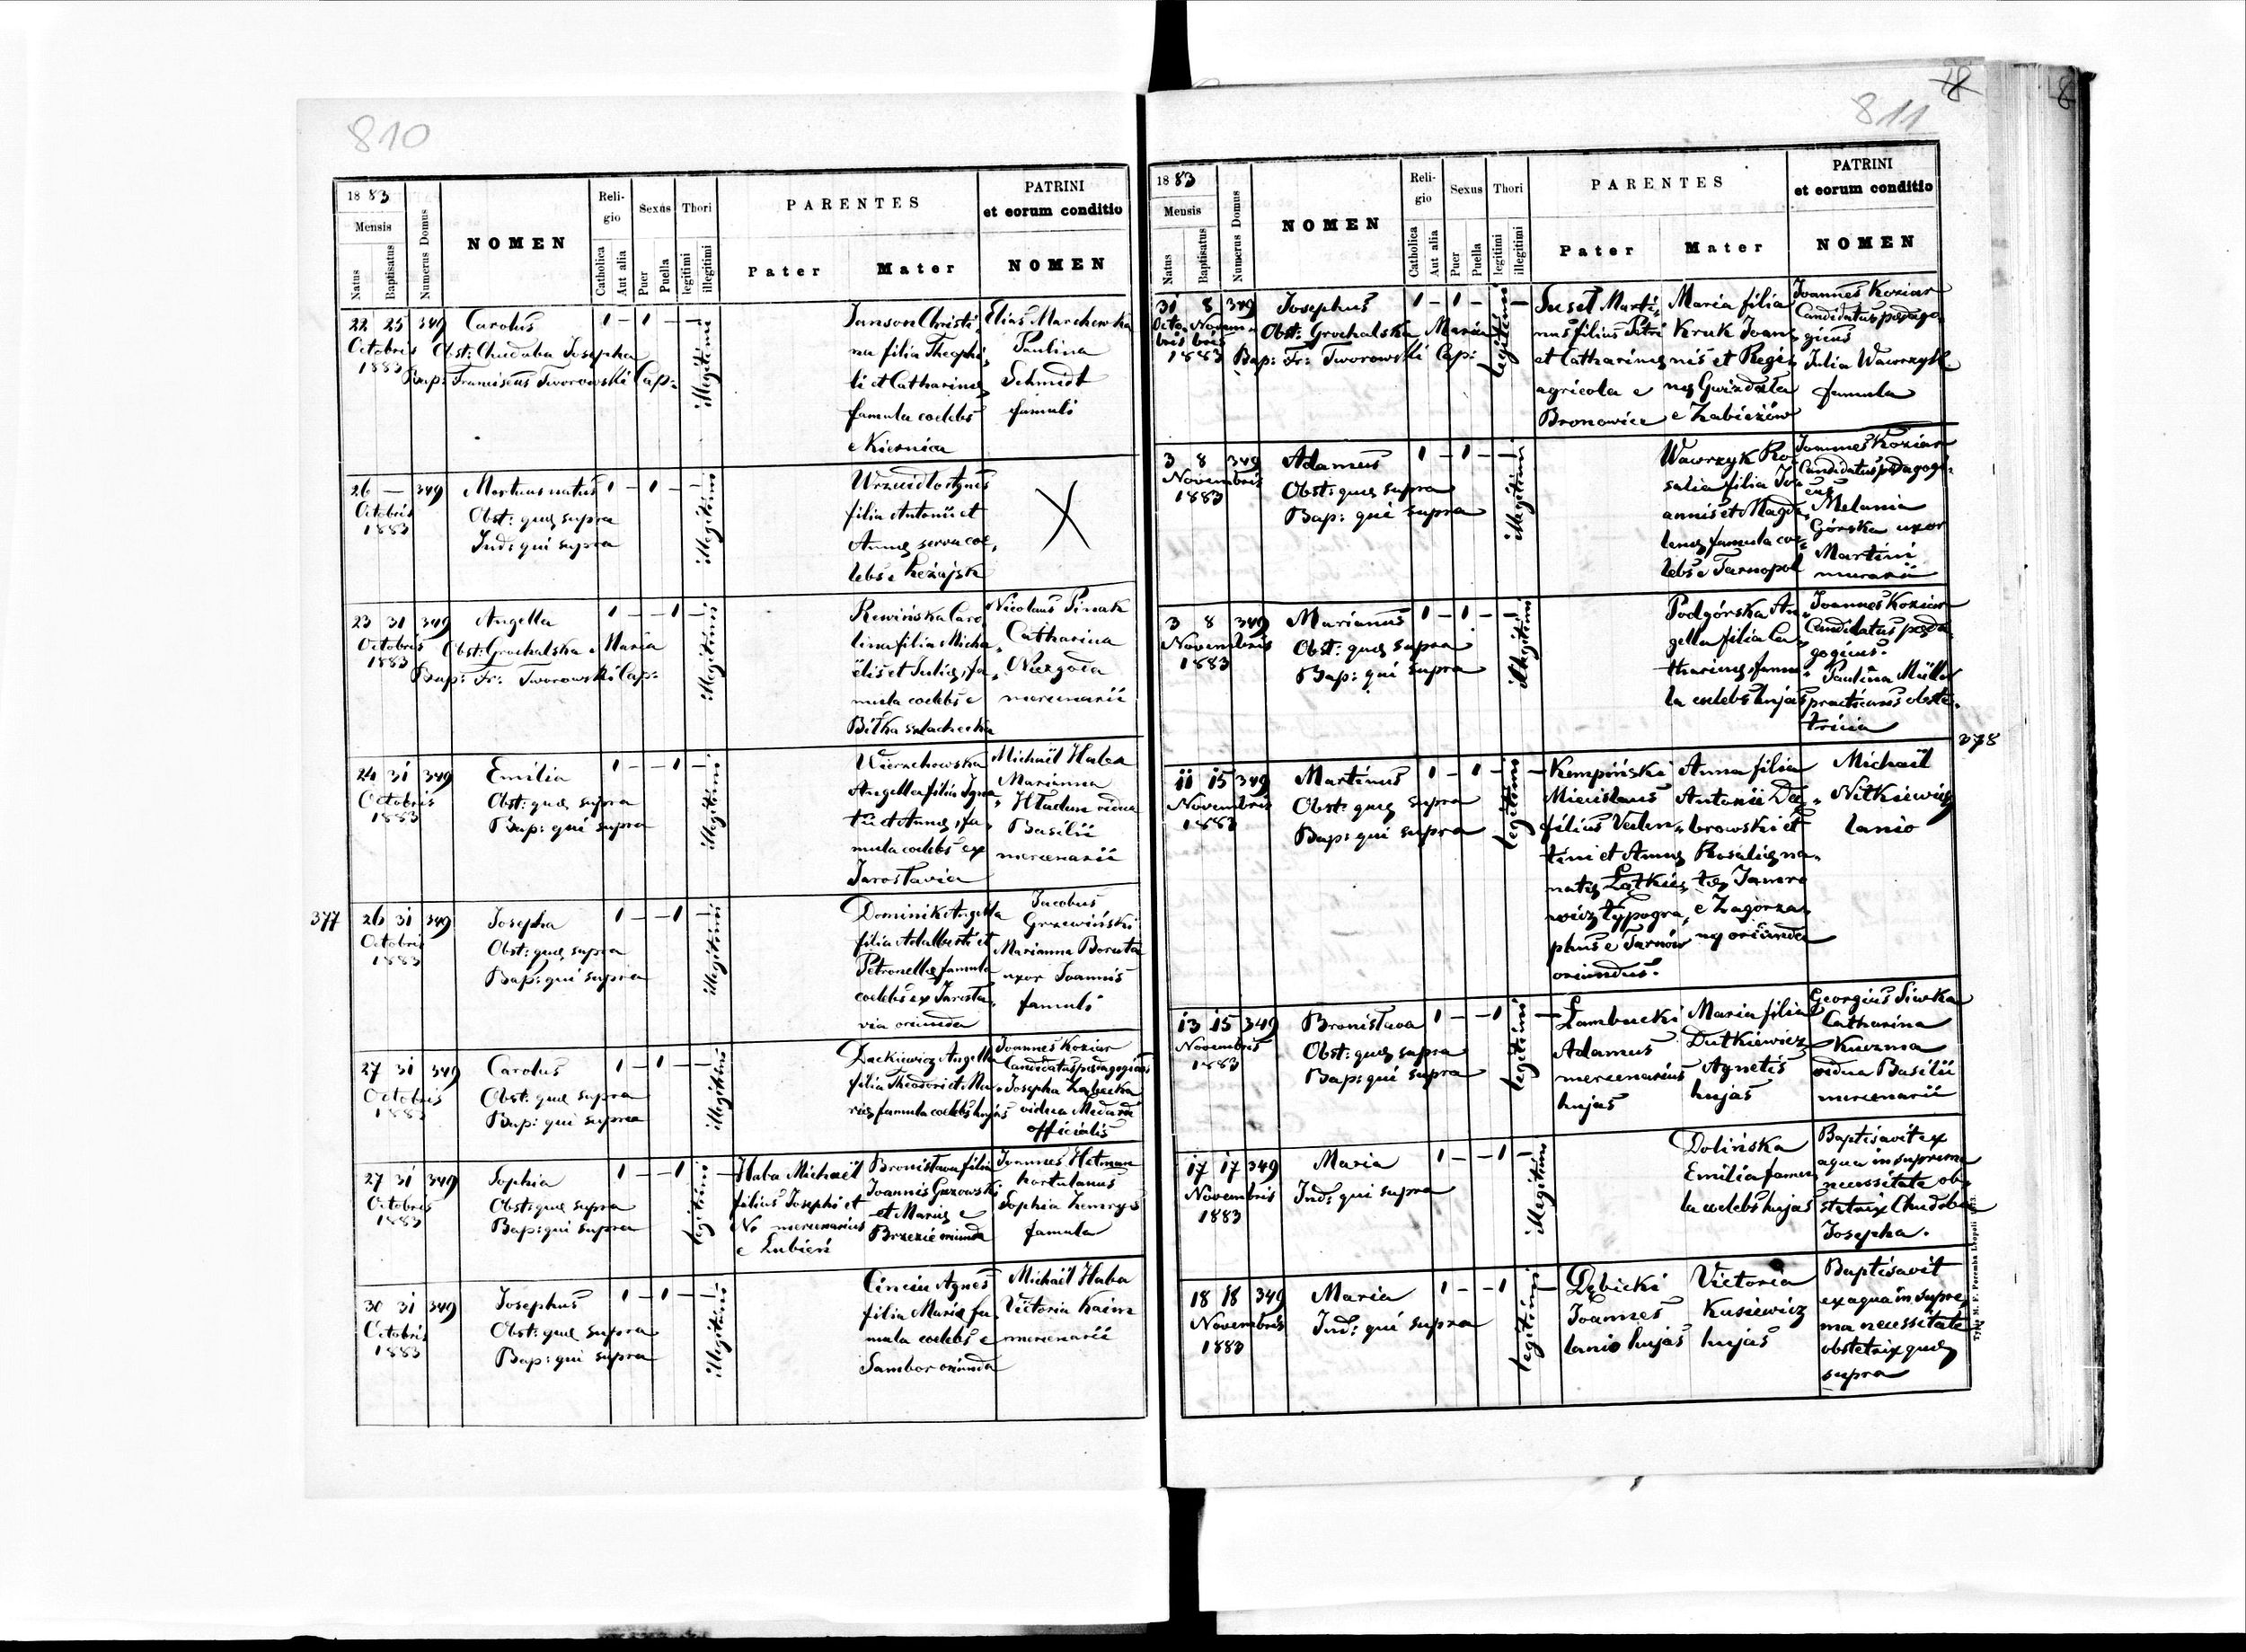 810
1883
Mensis
Natus
Baptisatus
Numerus Domus
NOMEN
Religio
Catholica
Aut alia
Sexus
Puer
Puella
Thori
legitimi
illegitimi
PARENTES
Pater
Mater
PATRINI
et eorum conditio
NOMEN
22 25 349 Carolus 1 – 1 – – 1
Octobris
1883
Obst: Chudoba Josepha
Bap: Franciscus Tworowski Cap:
illegitimi
Janson Christi,
na filia Theophi,
li et Catharinę
famula coelebs
e Kiernica
Elias Marchewka
Paulina
Schmidt
famuli
26 — 349 Mortuus natus 1 – 1 – – 1
Octobris
1883
Obst: quę supra
Ind: qui supra
illegitimi
filia Antonii et
Annę serva coe,
lebs e Leżajsk
23 31 349 Angella 1 – – 1 – 1
Octobris
1883
Obst: Grochalska Maria
Bap: Fr: Tworowski Cap:
illegitimi
Rewińska Caro,
lina filia Micha,
ëlis et Julię, fa,
mula coelebs e
Bitka szlachecka
Nicolaus Pinak
Catharina
Niezgoda
mercenarii
24 31 349 Emilia 1 – – 1 – 1
Octobris
1883
Obst: quę supra
Bap: qui supra
illegitimi
Wierzchowska
Angella filia Igna,
tii et Annę, fa,
mula coelebs ex
Jaroslavia
Michaël Haba
Marianna
Hladun vidua
Basilii
mercenarii
377
26 31 349 Josepha 1 – – 1 – 1
Octobris
1883
Obst: quę supra
Bap: qui supra
illegitimi
Dominik Angella
filia Adalberti et
Petronellę famula
coelebs ex Jarosla,
via oriunda
Jacobus
Grzewiński
Marianna Boruta
uxor Joannis
famuli
27 31 349 Carolus 1 – 1 – – 1
Octobris
1883
Obst: quę supra
Bap: qui supra
illegitimi
Dackiewicz Angella
filia Theodori et Ma,
rię famula coelebs hujas
Joannes Koziar
Candidatus pędagogicus
Josepha Zabecka
vidua Medardi
officialis
27 31 349 Sophia 1 – – 1 1 –
Octobris
1883
Obst: quę supra
Bap: qui supra
legitimi
Haba Michaël
filius Josephi et
No mercenarius
e Lubień
Bronislava filia
Joannis Guzowski
et Marię e
Brzezie oriunda
Joannes Hetman
hortulanus
Sophia Zemrys
famula
30 31 349 Josephus 1 – 1 – – 1
Octobris
1883
Obst: quę supra
Bap: qui supra
illegitimi
Cinciu Agnes
filia Marię fa,
mula coelebs e
Sambor oriunda
Michaël Haba
Victoria Kaim
mercenarii
811
1883
Mensis
Natus
Baptisatus
Numerus Domus
NOMEN
Religio
Catholica
Aut alia
Sexus
Puer
Puella
Thori
legitimi
illegitimi
PARENTES
Pater
Mater
PATRINI
et eorum conditio
NOMEN
31 8 349 Josephus 1 – 1 – 1 –
Octobris Novembris
1883
Obst: Grochalska Maria
Bap: Fr: Tworowski Cap:
legitimi
Suset Marti,
nus filius Petri
et Catharinę
agricola e
Bronowice
Maria filia
Kruk Joan,
nis et Regi,
nę Gwizdała
e Zabierzów
Joannes Koziar
Candidatus pedago,
gicus
Julia Wawrzyk
famula
3 8 349 Adamus 1 – 1 – – 1
Novembris
1883
Obst: quę supra
Bap: qui supra
illegitimi
Wawrzyk Ro,
salia filia Jo,
annis et Magda,
lenę famula coe,
lebs e Tarnopol
Joannes Koziar
Candidatus pedagogi,
cus
Melania
Górska uxor
Martini
murarii
3 8 349 Marianus 1 – 1 – – 1
Novembris
1883
Obst: quę supra
Bap: qui supra
illegitimi
Podgórska An,
gella filia Ca,
tharinę, famu,
la coelebs hujas
Joannes Koziar
Candidatus pęda,
gogicus.
Paulina Müller
practicans obste,
tricia
378
11 15 349 Martinus 1 – 1 – 1 –
Novembris
1883
Obst: quę supra
Bap: qui supra
legitimi
Kempiński
Miecislaus
filius Valen,
tini et Annę
natę Łątkie,
wicz typogra,
phus e Tarnów
oriundus.
Anna filia
Antonii Dą,
browski et
Rosalię na,
tę Jamro
e Zagórza,
ny oriunda
Michaël
Nitkiewicz
lanio
13 15 349 Bronislava 1 – – 1 1 –
Novembris
1883
Obst: quę supra
Bap: qui supra
legitimi
Łambucki
Adamus
mercenarius
hujas
Maria filia
Dutkiewicz
Agnetis
hujas
Georgius Siwka
Catharina
Kuczma
vidua Basilii
mercenarii
17 17 349 Maria 1 – – 1 – 1
Novembris
1883
Ind: qui supra
illegitimi
Dolińska
Emilia famu,
la coelebs hujas
Baptisavit ex
aqua in suprema
necessitate ob,
stetrix Chudoba
Josepha.
18 18 349 Maria 1 – – 1 1 –
Novembris
1883
Ind: qui supra
legitimi
Dębicki
Joannes
lanio hujas
Victoria
Kusiewicz
hujas
Baptisavit
ex aqua in supre,
ma necessitate
obstetrix quę
supra